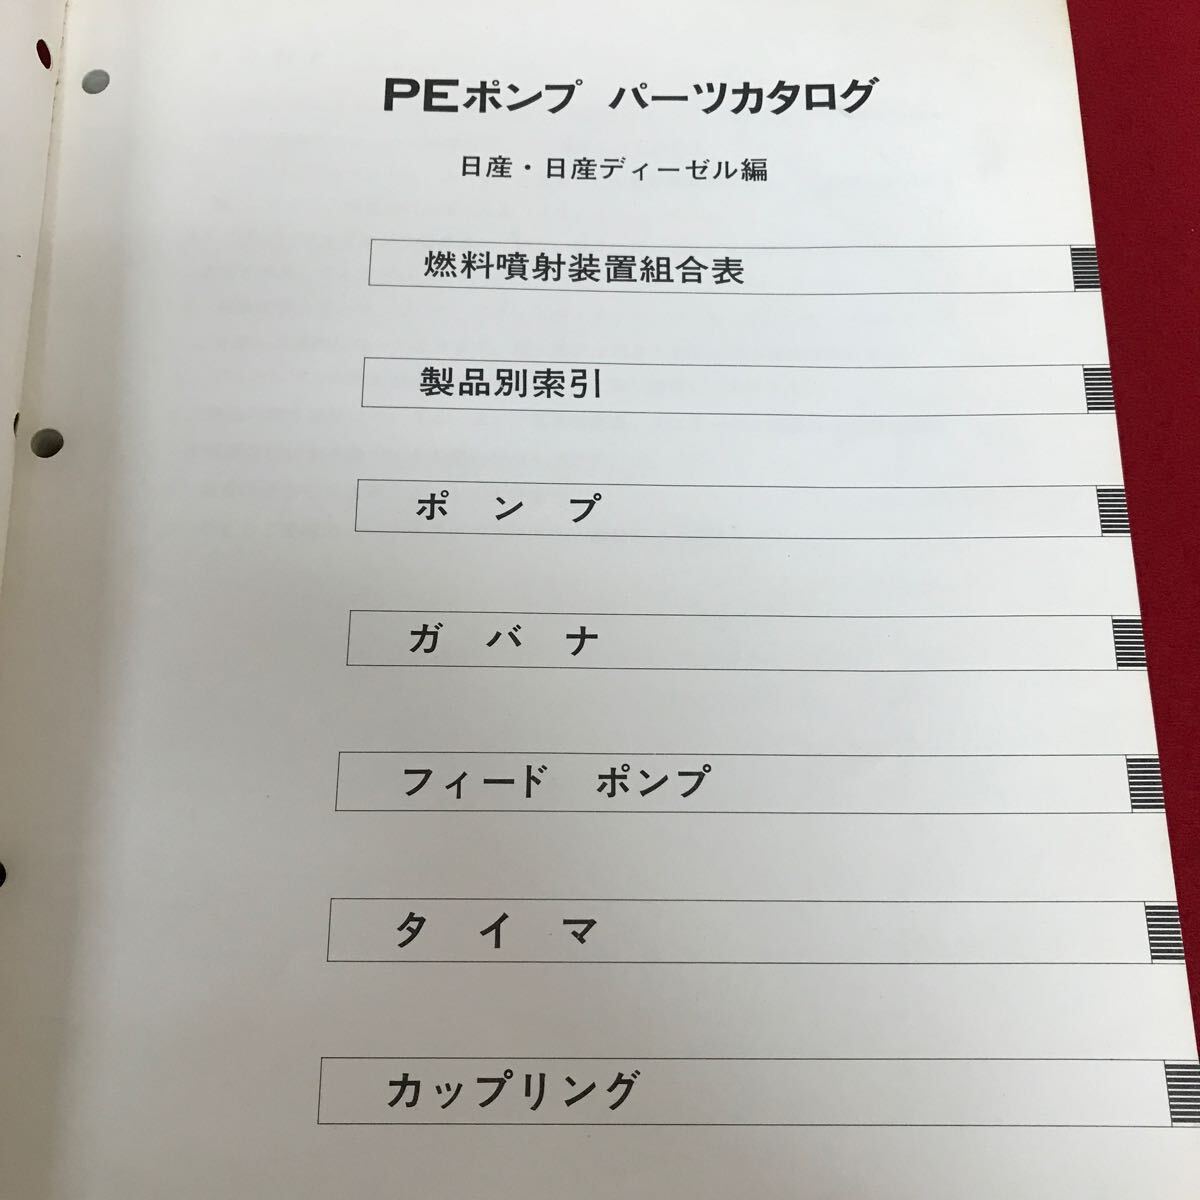 PEポンプ パーツカタログ
日産・日産ディーゼル編
燃料噴射装置組合表
製品別索引
ポンプ
ガバナ
フィード ポンプ
タイマ
カップリング